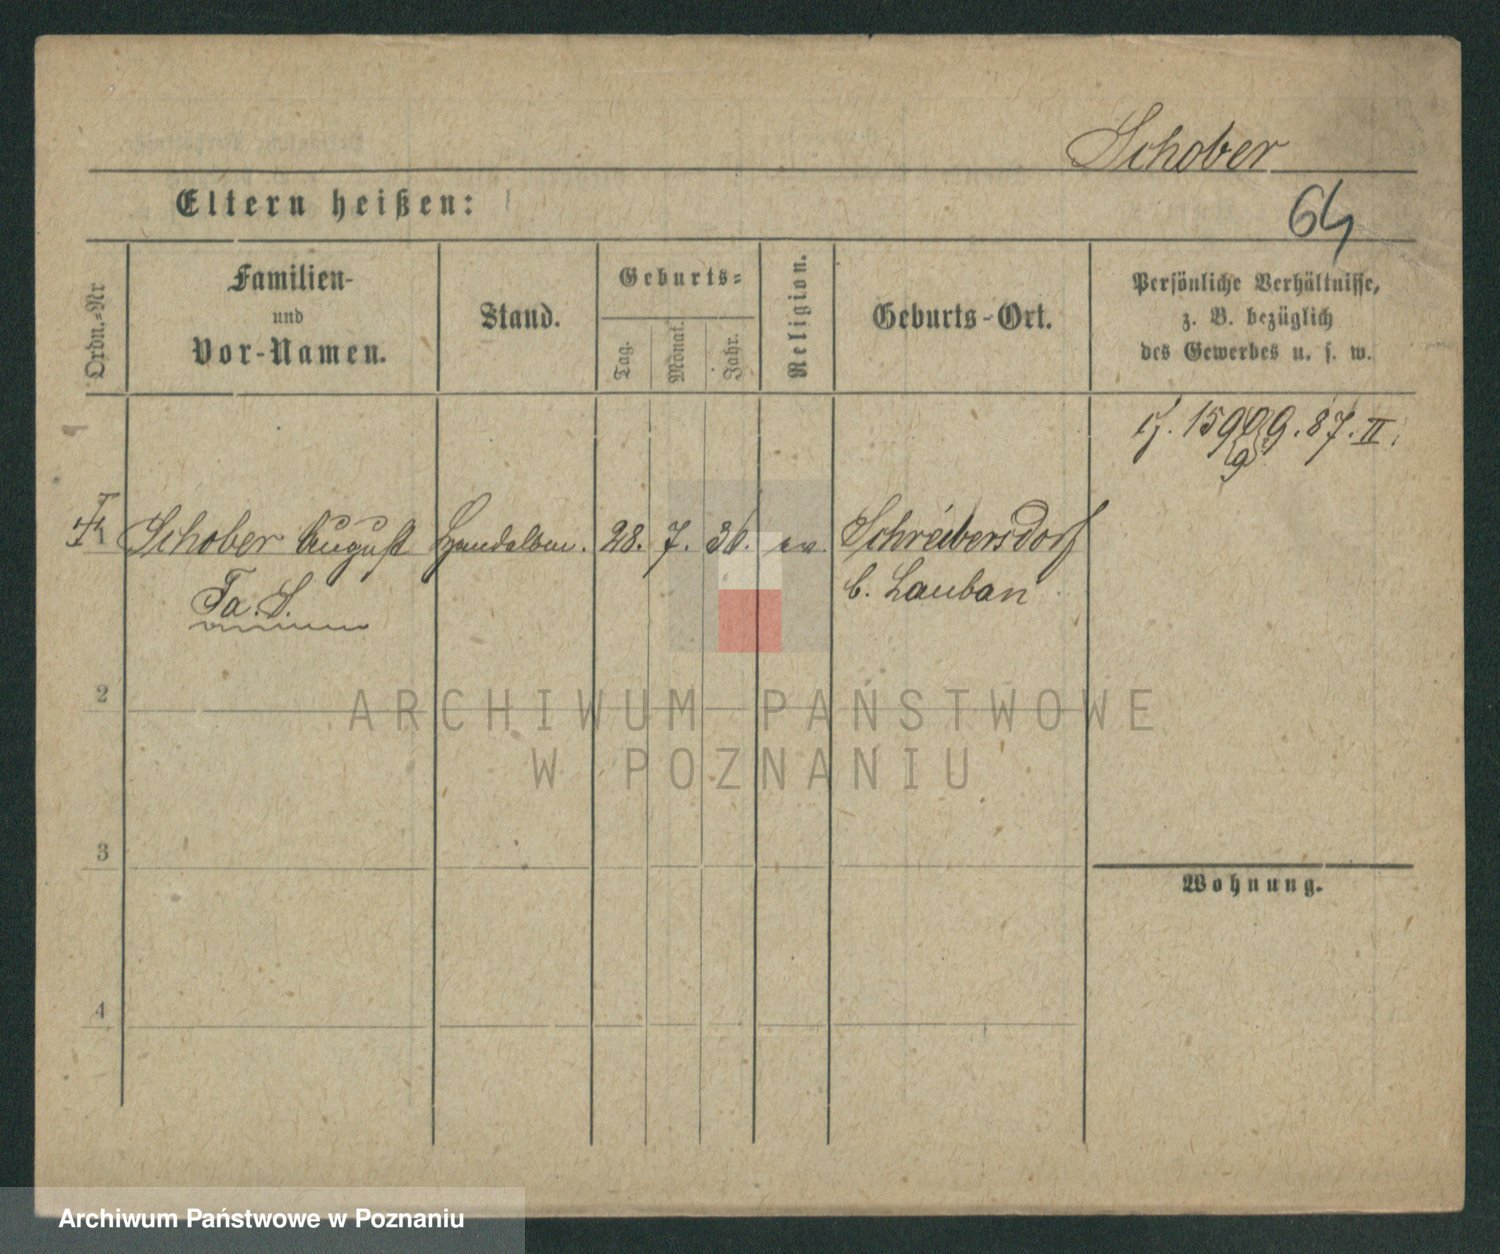 Schober
Eltern heißen:
64
Ordn.-Nr
Familien-
und
Vor-Namen.
Stand.
Geburts-
Tag.
Monat.
Jahr.
Religion.
Geburts-Ort.
Persönliche Verhältnisse,
z. B. bezüglich
des Gewerbes u. s. w.
87. II.
1 Schober August 28. 7. ev. Schreibersdorf
b. Lauban
2
3
4
Wohnung.
ARCHIWUM PAŃSTWOWE
W POZNANIU
Archiwum Państwowe w Poznaniu